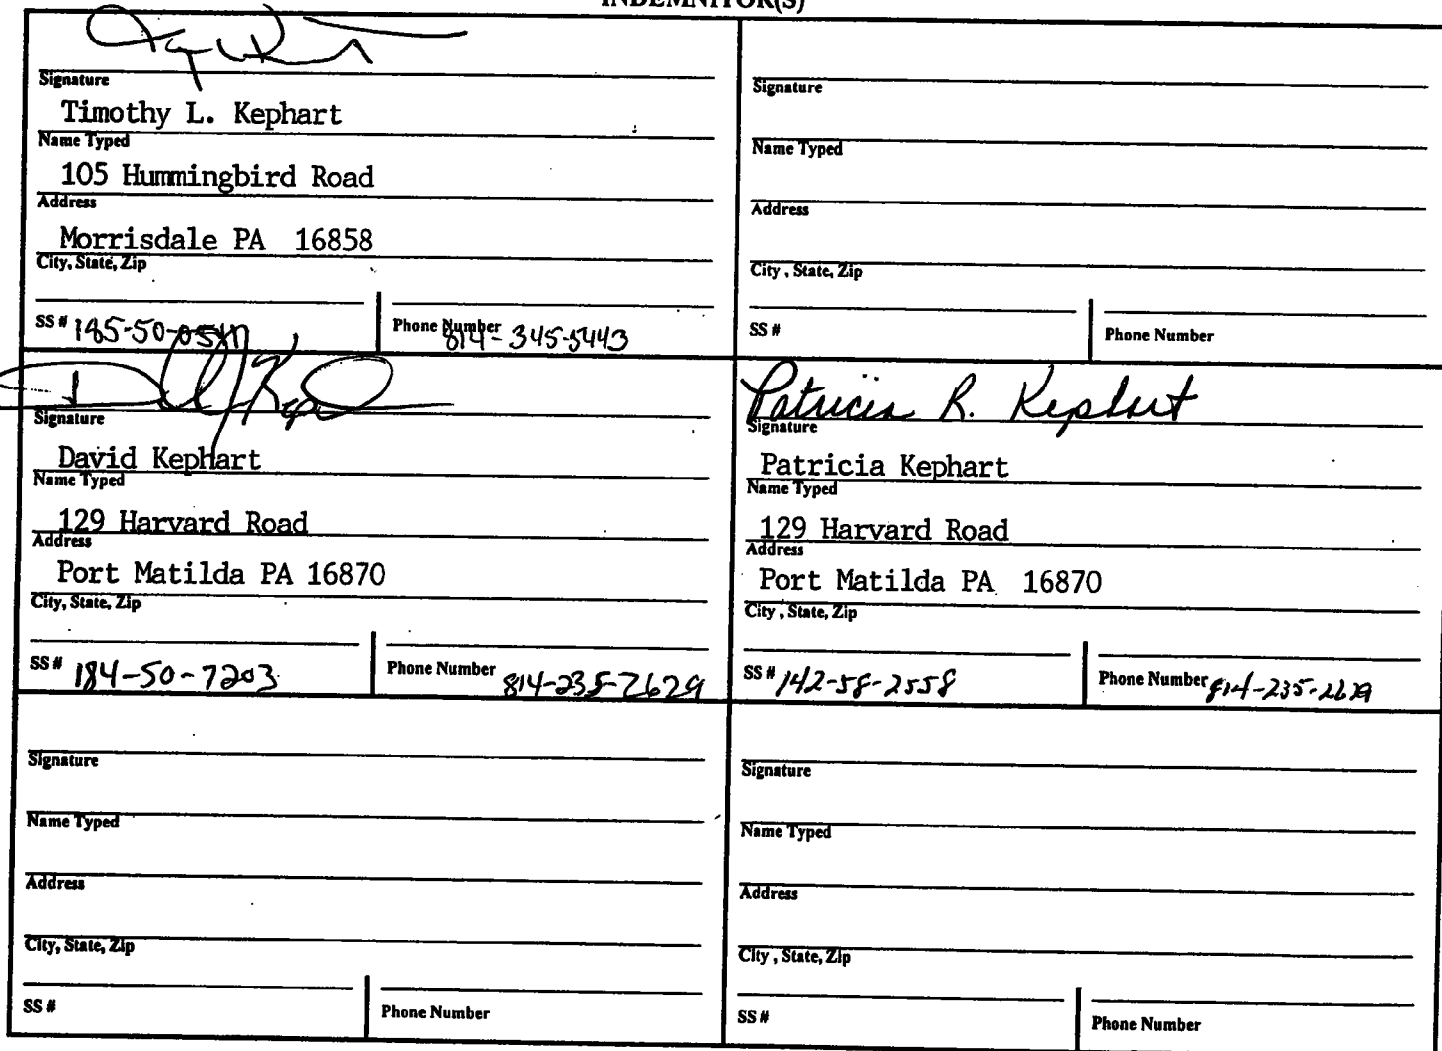 INDEMNITOR(S)
Signature
Timothy L. Kephart
Name Typed
105 Hummingbird Road
Address
Morrisdale PA 16858
City, State, Zip
SS # Phone Number 814-345-5443
Signature
Name Typed
Address
City, State, Zip
SS # Phone Number
Signature
David Kephart
Name Typed
129 Harvard Road
Address
Port Matilda PA 16870
City, State, Zip
SS # 184-50-7203 Phone Number 814-235-2629
Patricia R. Kephart
Signature
Patricia Kephart
Name Typed
129 Harvard Road
Address
Port Matilda PA 16870
City, State, Zip
SS # 142-58-2558 Phone Number 814-235-2629
Signature
Name Typed
Address
City, State, Zip
SS # Phone Number
Signature
Name Typed
Address
City, State, Zip
SS # Phone Number